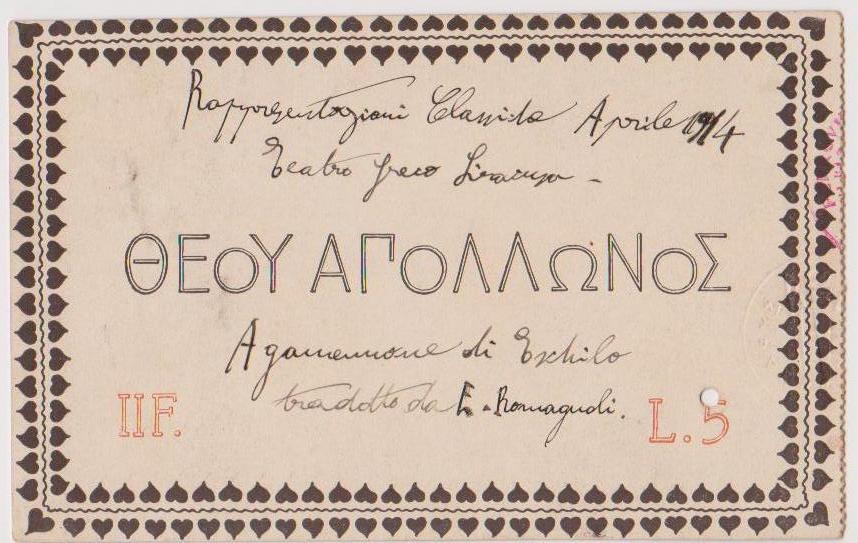 Rappresentazioni Classiche Aprile 1914
Teatro greco Siracusa -
ΘΕΟΥ ΑΠΟΛΛΩΝΟΣ
Agamennone di Eschilo
tradotto da E. Romagnoli.
II F.
L. 5